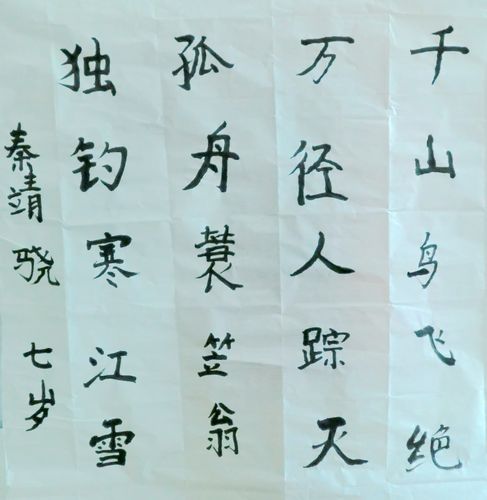 千山鸟飞绝
万径人踪灭
孤舟蓑笠翁
独钓寒江雪
秦靖骁 七岁